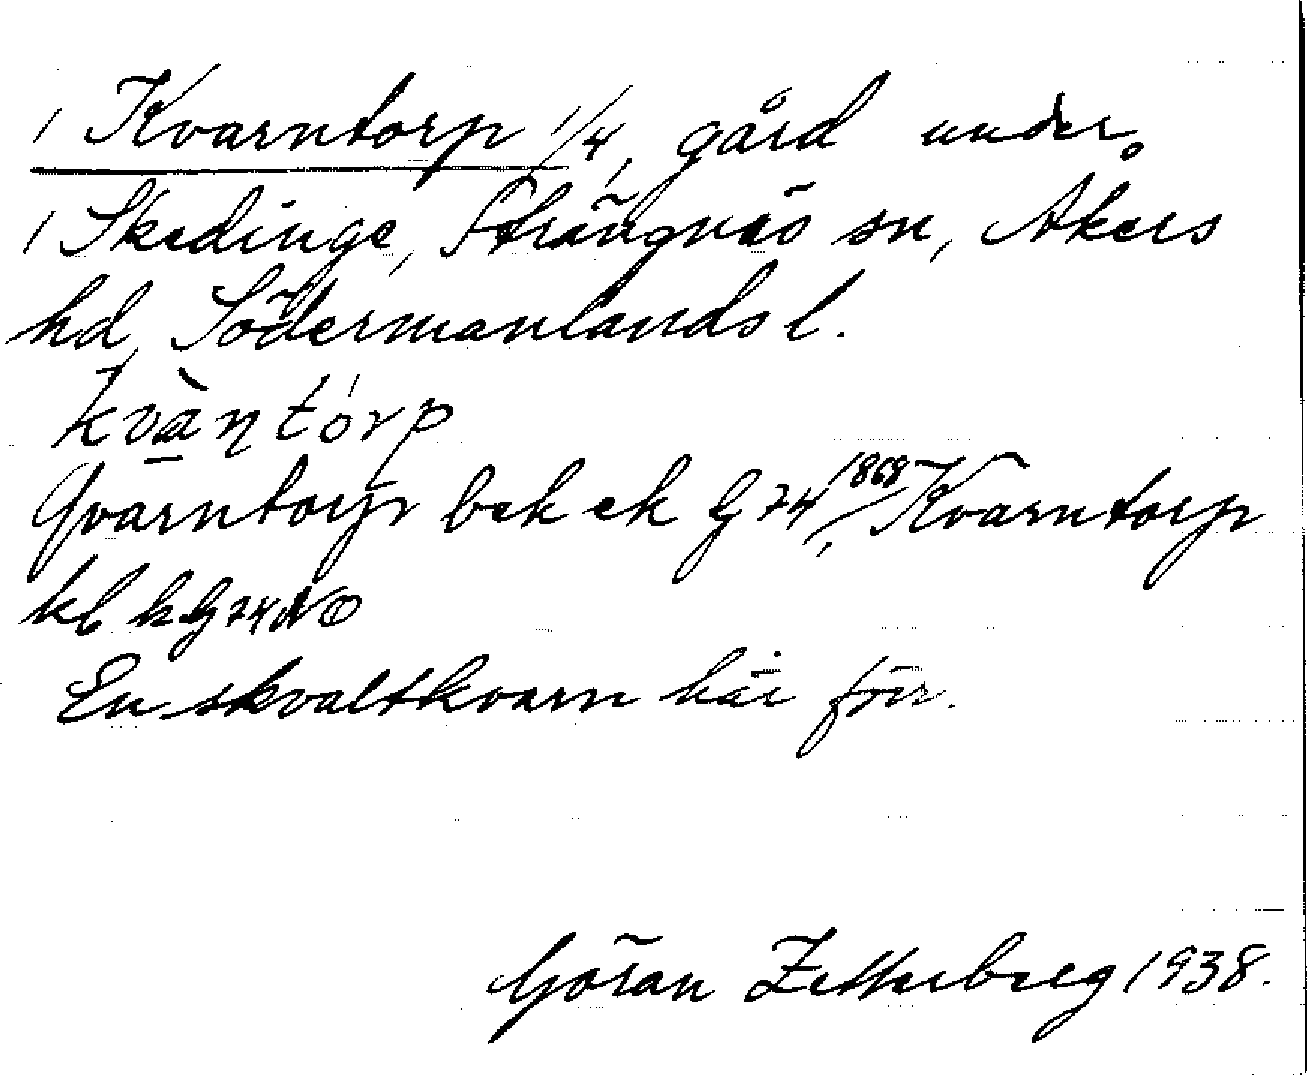 / Kvarntorp 1/4, gård under
/ Skedinge, Strängnäs sn, Åkers
hd, Södermanlands l.
kvàṉtórp
Qvarntorp bek ek G 74 1868, Kvarntorp
kl k G 74 NO
En skvaltkvarn här förr.
Göran Zetterberg 1938.